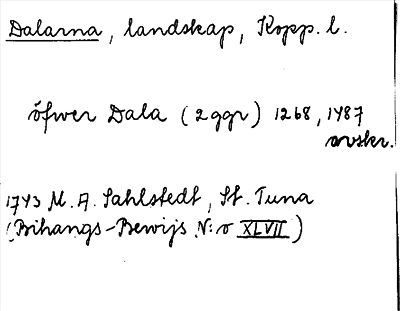 Dalarna, landskap, Kopp. l.
öfwer Dala (2 ggr) 1268, 1487
avskr.
1743 M. A. Sahlstedt, St. Tuna
(Bihangs-Bewijs N:o XLVII)